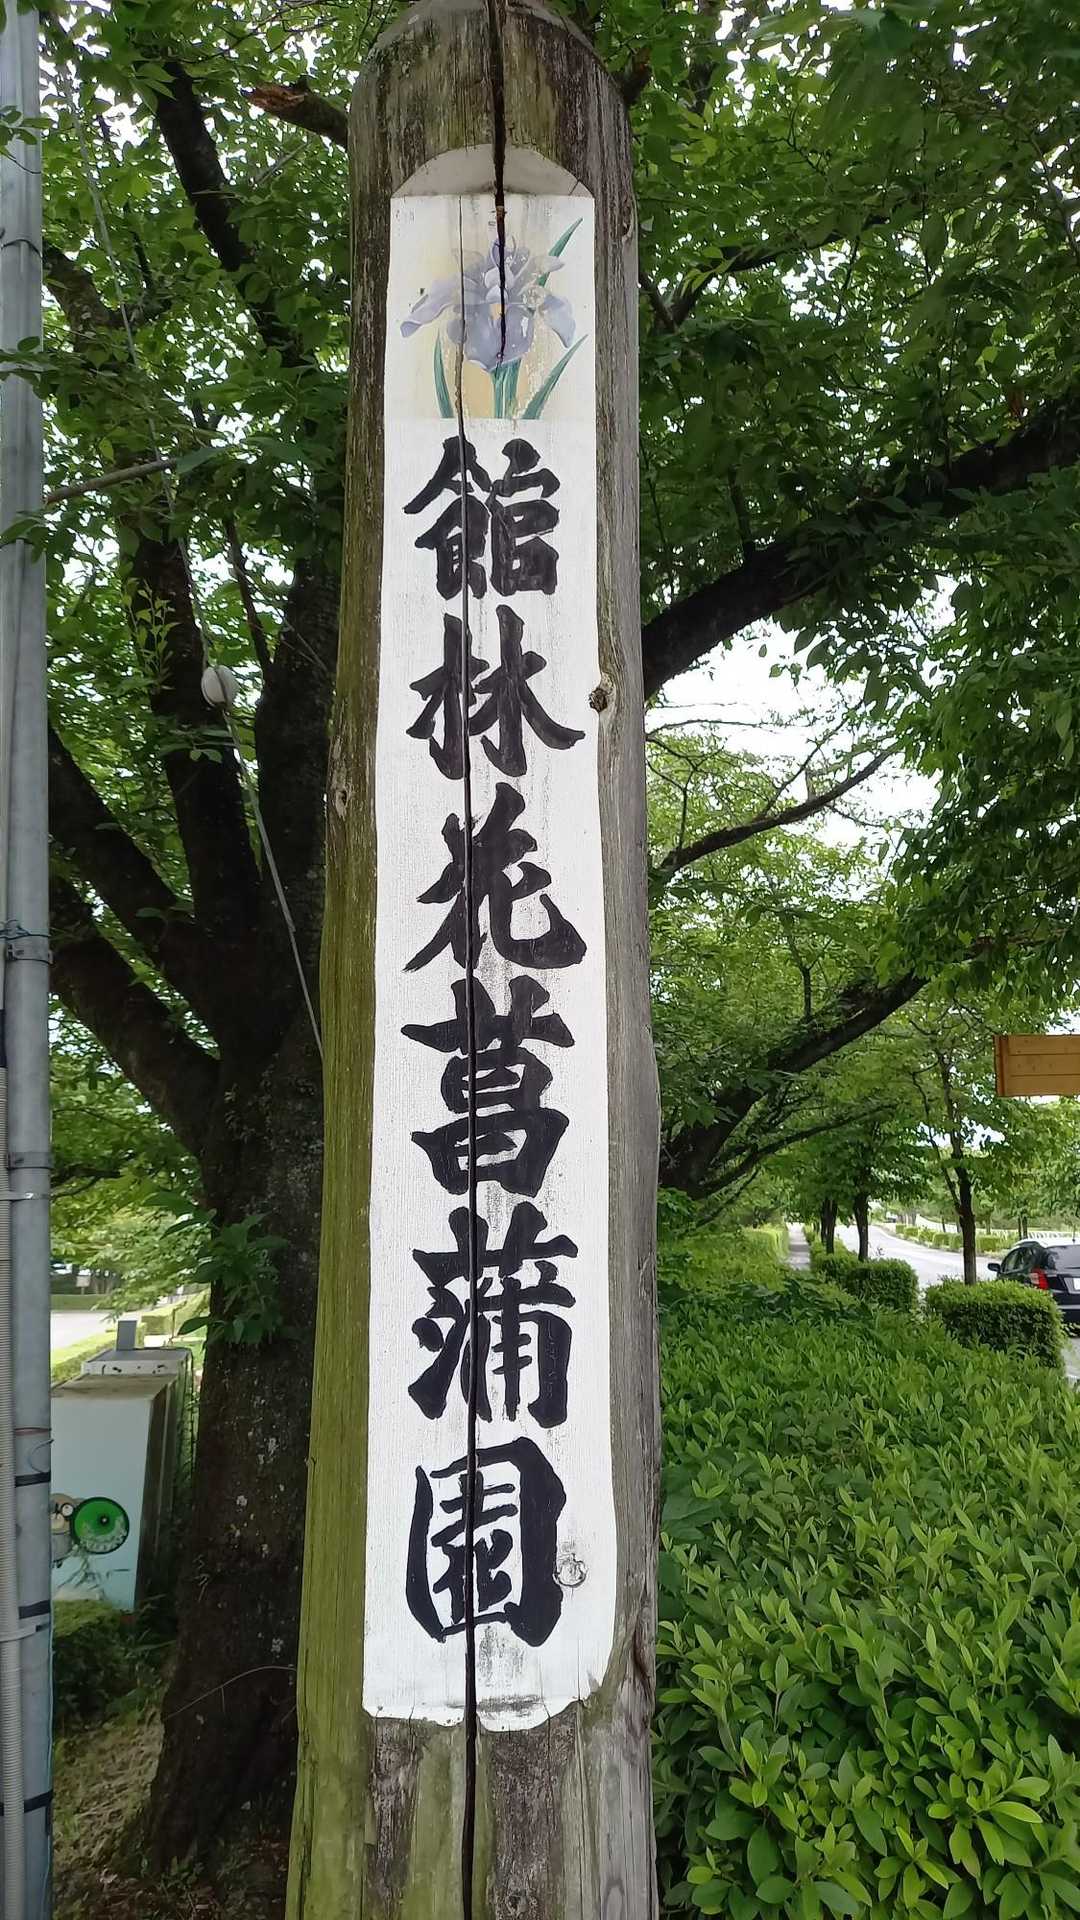 館林花菖蒲園